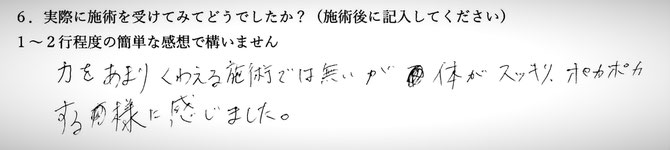 ６．実際に施術を受けてみてどうでしたか？（施術後に記入してください）
１～２行程度の簡単な感想で構いません
力をあまりくわえる施術では無いが 体がスッキリ、ポカポカ
する様に感じました。